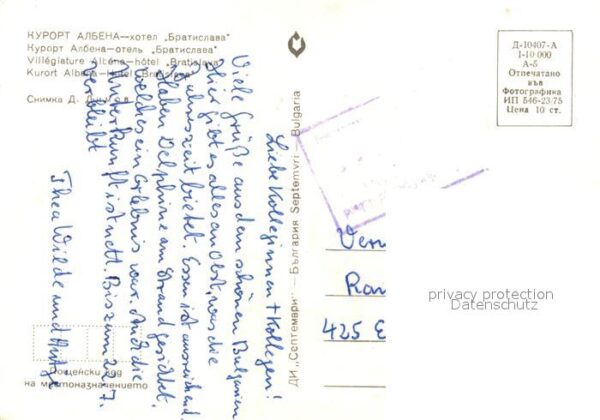 КУРОРТ АЛБЕНА—хотел „Братислава“
Курорт Албена—отель „Братислава“
Villégiature Albéna—hôtel „Bratislava“
Kurort Albena—Hotel „Bratislava“
Снимка Д.
Д-10407-А
I-10 000
А-5
Отпечатано
във
Фотографика
ИП 546-23/75
Цена 10 ст.
ДИ „Септември“ — България Septemvri — Bulgaria
Liebe Kolleginnen + Kollegen!
Viele Grüße aus dem schönen Bulgarien
Hier gibt es alles an Obst, was die
Jahreszeit bietet. Essen ist ausreichend.
Haben Delphine am Strand gesichtet.
Welches ein Erlebnis war. Auch die
Unterkunft ist nett. Bis zum 20.7.
verbleibt
Thea Wilde und Antje
425 E
privacy protection
Datenschutz
Пощенски код
на местоназначението